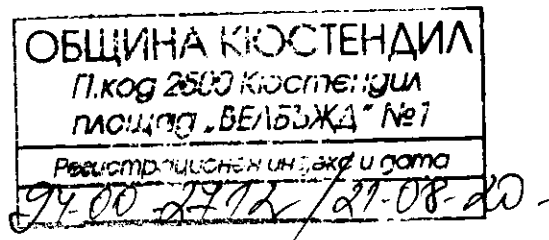 ОБЩИНА КЮСТЕНДИЛ
П.код 2500 Кюстендил
площад „ВЕЛБЪЖД" №1
Регистрационен индекс и дата
94-00-2712/21-08-20